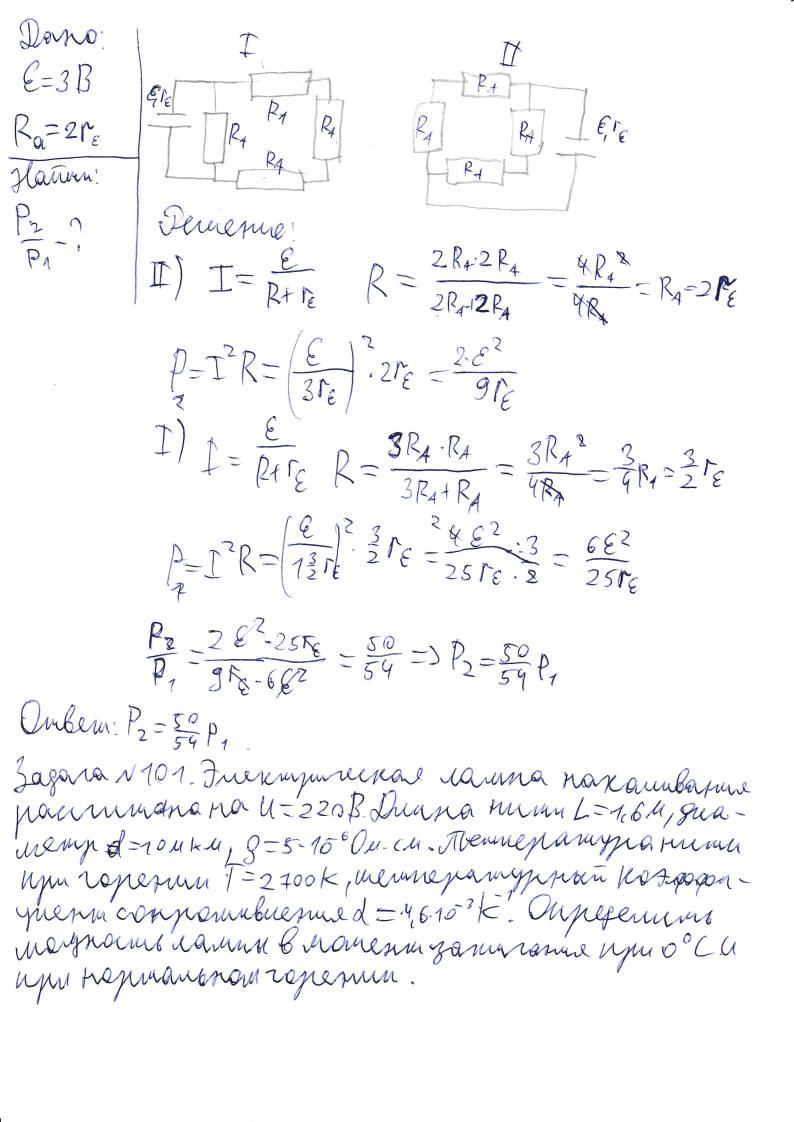 Дано:
ε=3В
Rа=2rε
Найти:
P2/P1 - ?
I
ε,rε
R1
R1
R1
R1
II
R1
R1
R1
R1
ε, rε
Решение:
II) I = ε/(R+rε) R = (2R1·2R1)/(2R1+2R1) = 4R1²/4R1 = R1=2rε
P2=I²R=(ε/3rε)²·2rε = 2·ε²/9rε
I) I = ε/(R+rε) R = (3RA·RA)/(3RA+RA) = 3RA²/4RA = 3/4 R1 = 3/2 rε
P1=I²R=(ε/(1 3/2 rε))²·3/2 rε = (4ε²·3)/(25rε·2) = 6ε²/25rε
P2/P1 = (2ε²·25rε)/(9rε·6ε²) = 50/54 => P2 = 50/54 P1
Ответ: P2 = 50/54 P1.
Задача №101. Электрическая лампа накаливания
расчитана на U=220В. Длина нити L=1,6м, диа-
метр d=10мкм, ρ=5·10⁻⁶Ом·см. Температура нити
при горении T=2700K, температурный коэффи-
циент сопротивления α=4,6·10⁻³K⁻¹. Определить
мощность лампы в момент зажигания при 0°C и
при нормальном горении.